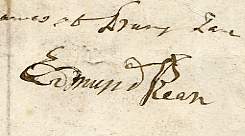 at Drury Lane
Edmund Kean